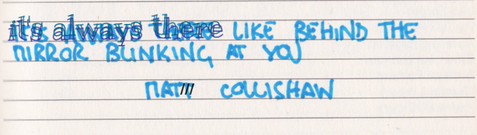 it's always there LIKE BEHIND THE
MIRROR BLINKING AT YOU
MAT COLLISHAW